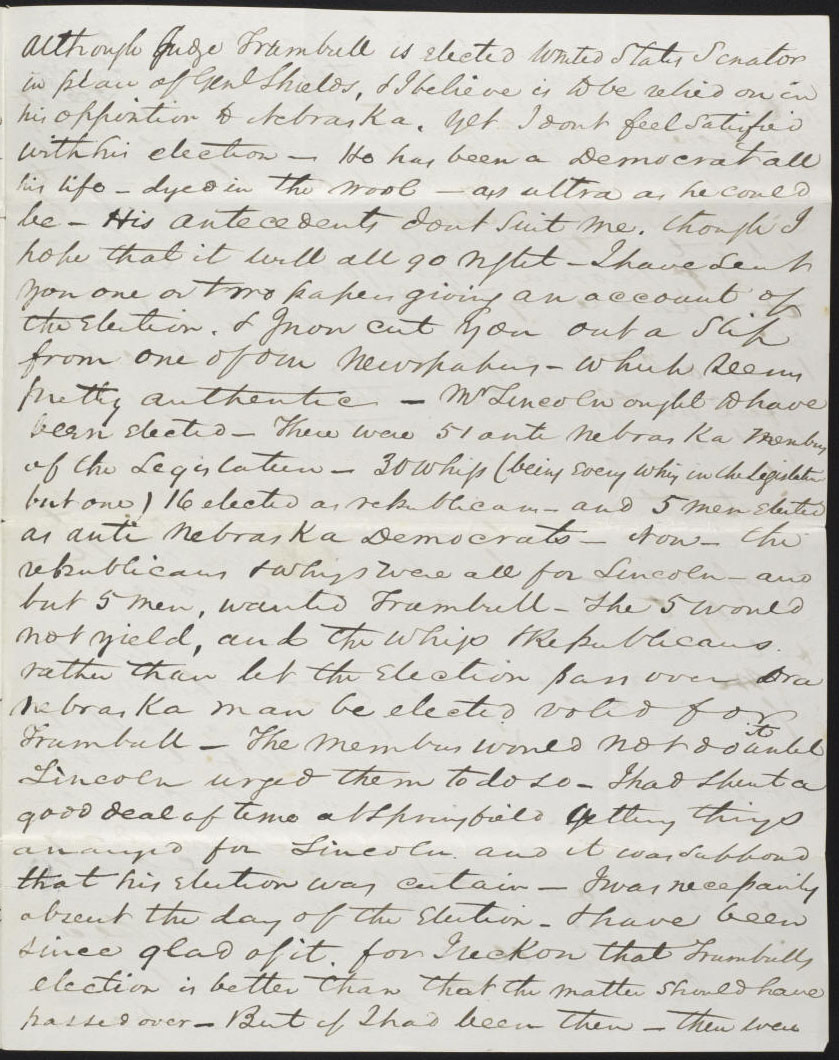 although Judge Trumbull is elected United States Senator
in place of Genl Shields, & I believe is to be relied on in
his opposition to Nebraska. Yet I dont feel satisfied
with his election — He has been a Democrat all
his life — dyed in the wool — as ultra as he could
be — His antecedents dont suit me. though I
hope that it will all go right — I have sent
you one or two papers giving an account of
the Election. & I now cut you out a slip
from one of our Newspapers — which seems
pretty authentic — Mr Lincoln ought to have
been elected — There were 51 anti Nebraska members
of the Legislature — 30 Whigs (being every Whig in the Legislature
but one) 16 elected as republicans — and 5 men elected
as anti Nebraska Democrats — Now — the
republicans & whigs were all for Lincoln — and
but 5 men, wanted Trumbull — The 5 would
not yield, and the Whigs & Republicans.
rather than let the Election pass over or a
Nebraska man be elected voted for
Trumbull — The members would not do it until
Lincoln urged them to do so — I had spent a
good deal of time at Springfield getting things
arranged for Lincoln. and it was supposed
that his Election was certain — I was necessarily
absent the day of the Election — I have been
since glad of it. for I reckon that Trumbulls
election is better than that the matter should have
passed over — But if I had been there — there were